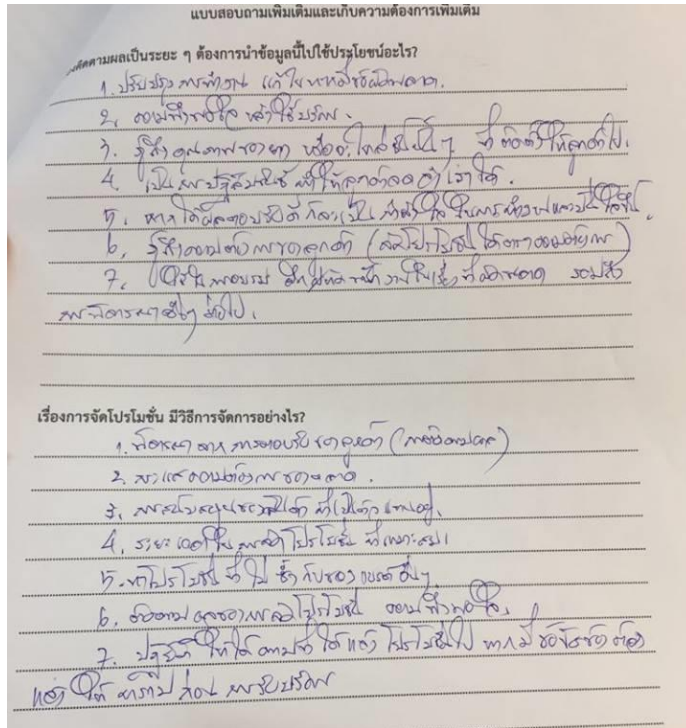 แบบสอบถามเพิ่มเติมและเก็บความต้องการเพิ่มเติม
ติดตามผลเป็นระยะ ๆ ต้องการนำข้อมูลนี้ไปใช้ประโยชน์อะไร?
1. ปรับปรุงการทำงาน แก้ไขหากมีข้อผิดพลาด.
2. ความพึงพอใจ หลังใช้บริการ.
3. รู้ถึงคุณภาพของยา หรืออะไหล่อื่นๆ ที่ติดตั้งให้ลูกค้าไป.
4. เป็นการปฏิสัมพันธ์ ทำให้ลูกค้าจดจำเราได้.
5. หากได้ผลตอบรับดีก็จะเป็นกำลังใจในการทำงานและ
6. รู้ถึงความต้องการของลูกค้า (จัดโปรโมชั่นได้ตรงความต้องการ)
7. ใช้ในการอบรม พนักงานในเรื่องที่ผิดพลาด รวมถึง
การพิจารณาอื่นๆ ต่อไป.
เรื่องการจัดโปรโมชั่น มีวิธีการจัดการอย่างไร?
1. พิจารณาจากการตอบรับของลูกค้า
2. กระแสความต้องการของตลาด.
3. การสนับสนุนของสินค้าที่เป็นตัวแทนอยู่.
4. ระยะเวลาในการจัดโปรโมชั่นที่เหมาะสม.
5. ทำโปรโมชั่นที่ไม่ซ้ำกับของแบรนด์อื่นๆ.
6. ติดตามผลของการจัดโปรโมชั่น ความพึงพอใจ.
7. ปฏิบัติให้ได้ตามที่ได้แจ้งโปรโมชั่นไป หากมีข้อขัดข้องต้อง
แจ้งให้ทราบก่อนการรับบริการ